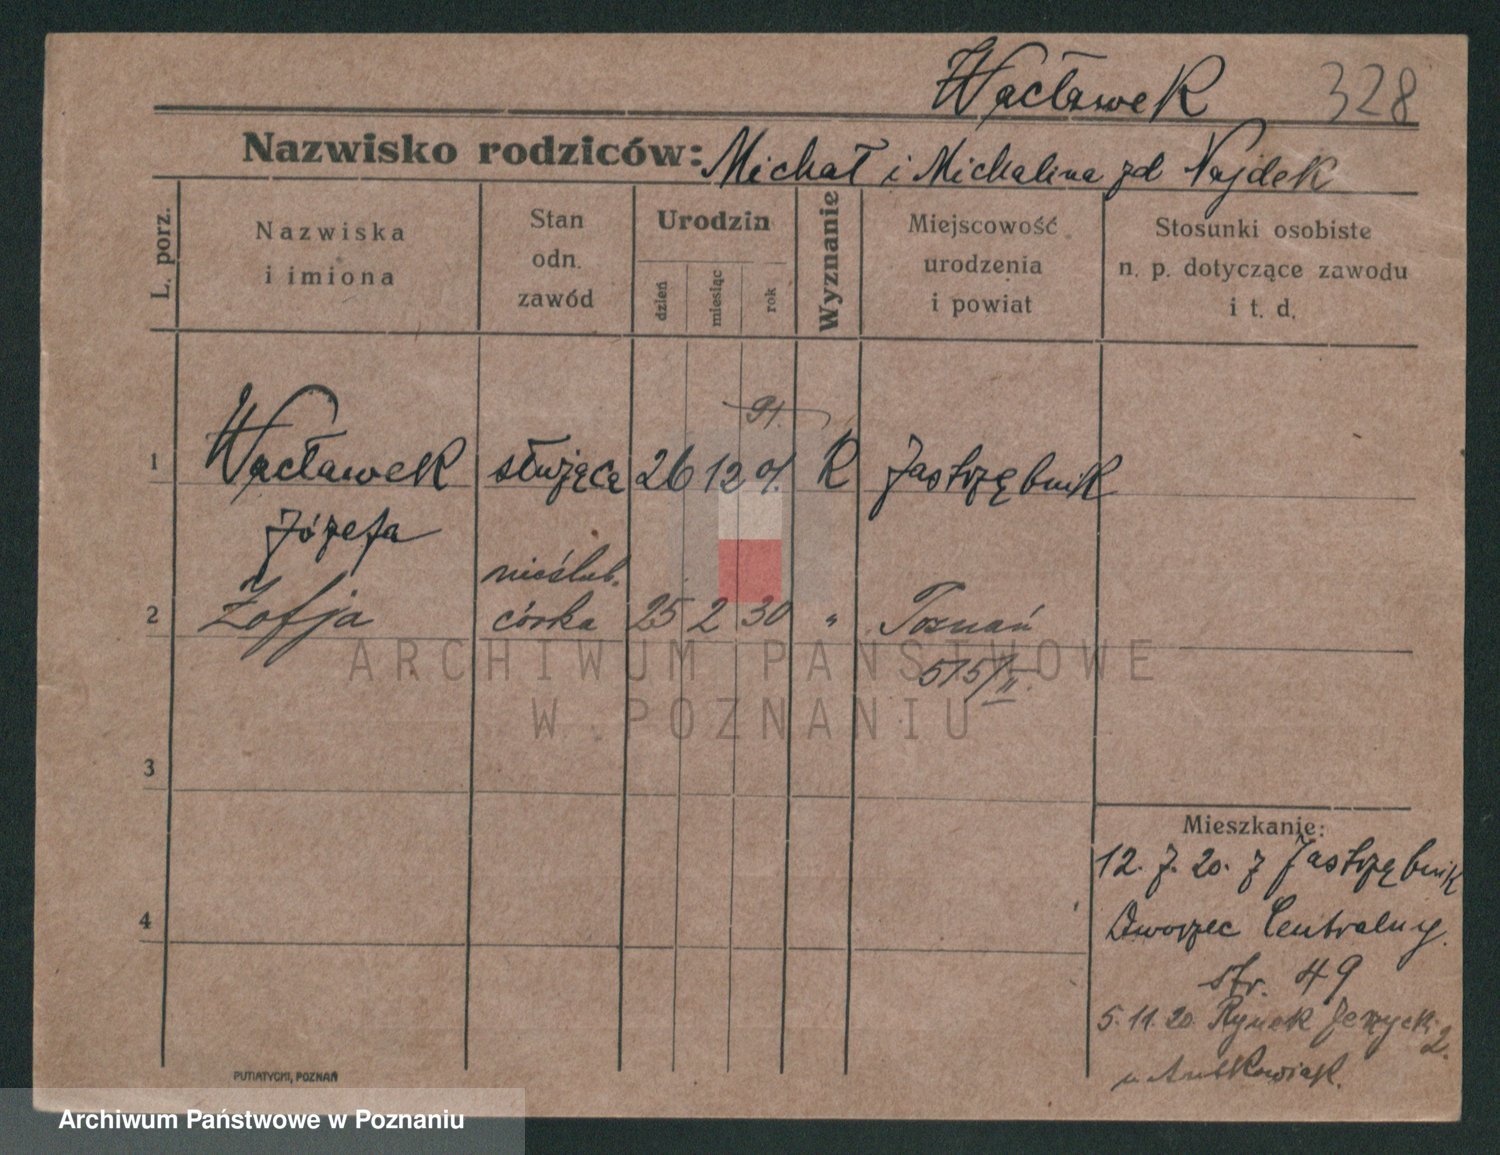 Wacławek 328
Nazwisko rodziców: Michał i Michalina zd Najdek
L. porz.
Nazwiska
i imiona
Stan
odn.
zawód
Urodzin
dzień
miesiąc
rok
Wyznanie
Miejscowość
urodzenia
i powiat
Stosunki osobiste
n. p. dotyczące zawodu
i t. d.
91.
1 Wacławek służąca 26 12 01. R Jastrzębnik
Józefa
nieślub.
2 Zofja córka 25 2 30 " Poznań
515/II.
ARCHIWUM PAŃSTWOWE
W POZNANIU
3
4
Mieszkanie:
12. 7. 20. z Jastrzębnik
Dworzec Centralny.
str. 49
5. 11. 20 Rynek Jeżycki 2.
u Antkowiak.
PUTIATYCKI, POZNAŃ
Archiwum Państwowe w Poznaniu